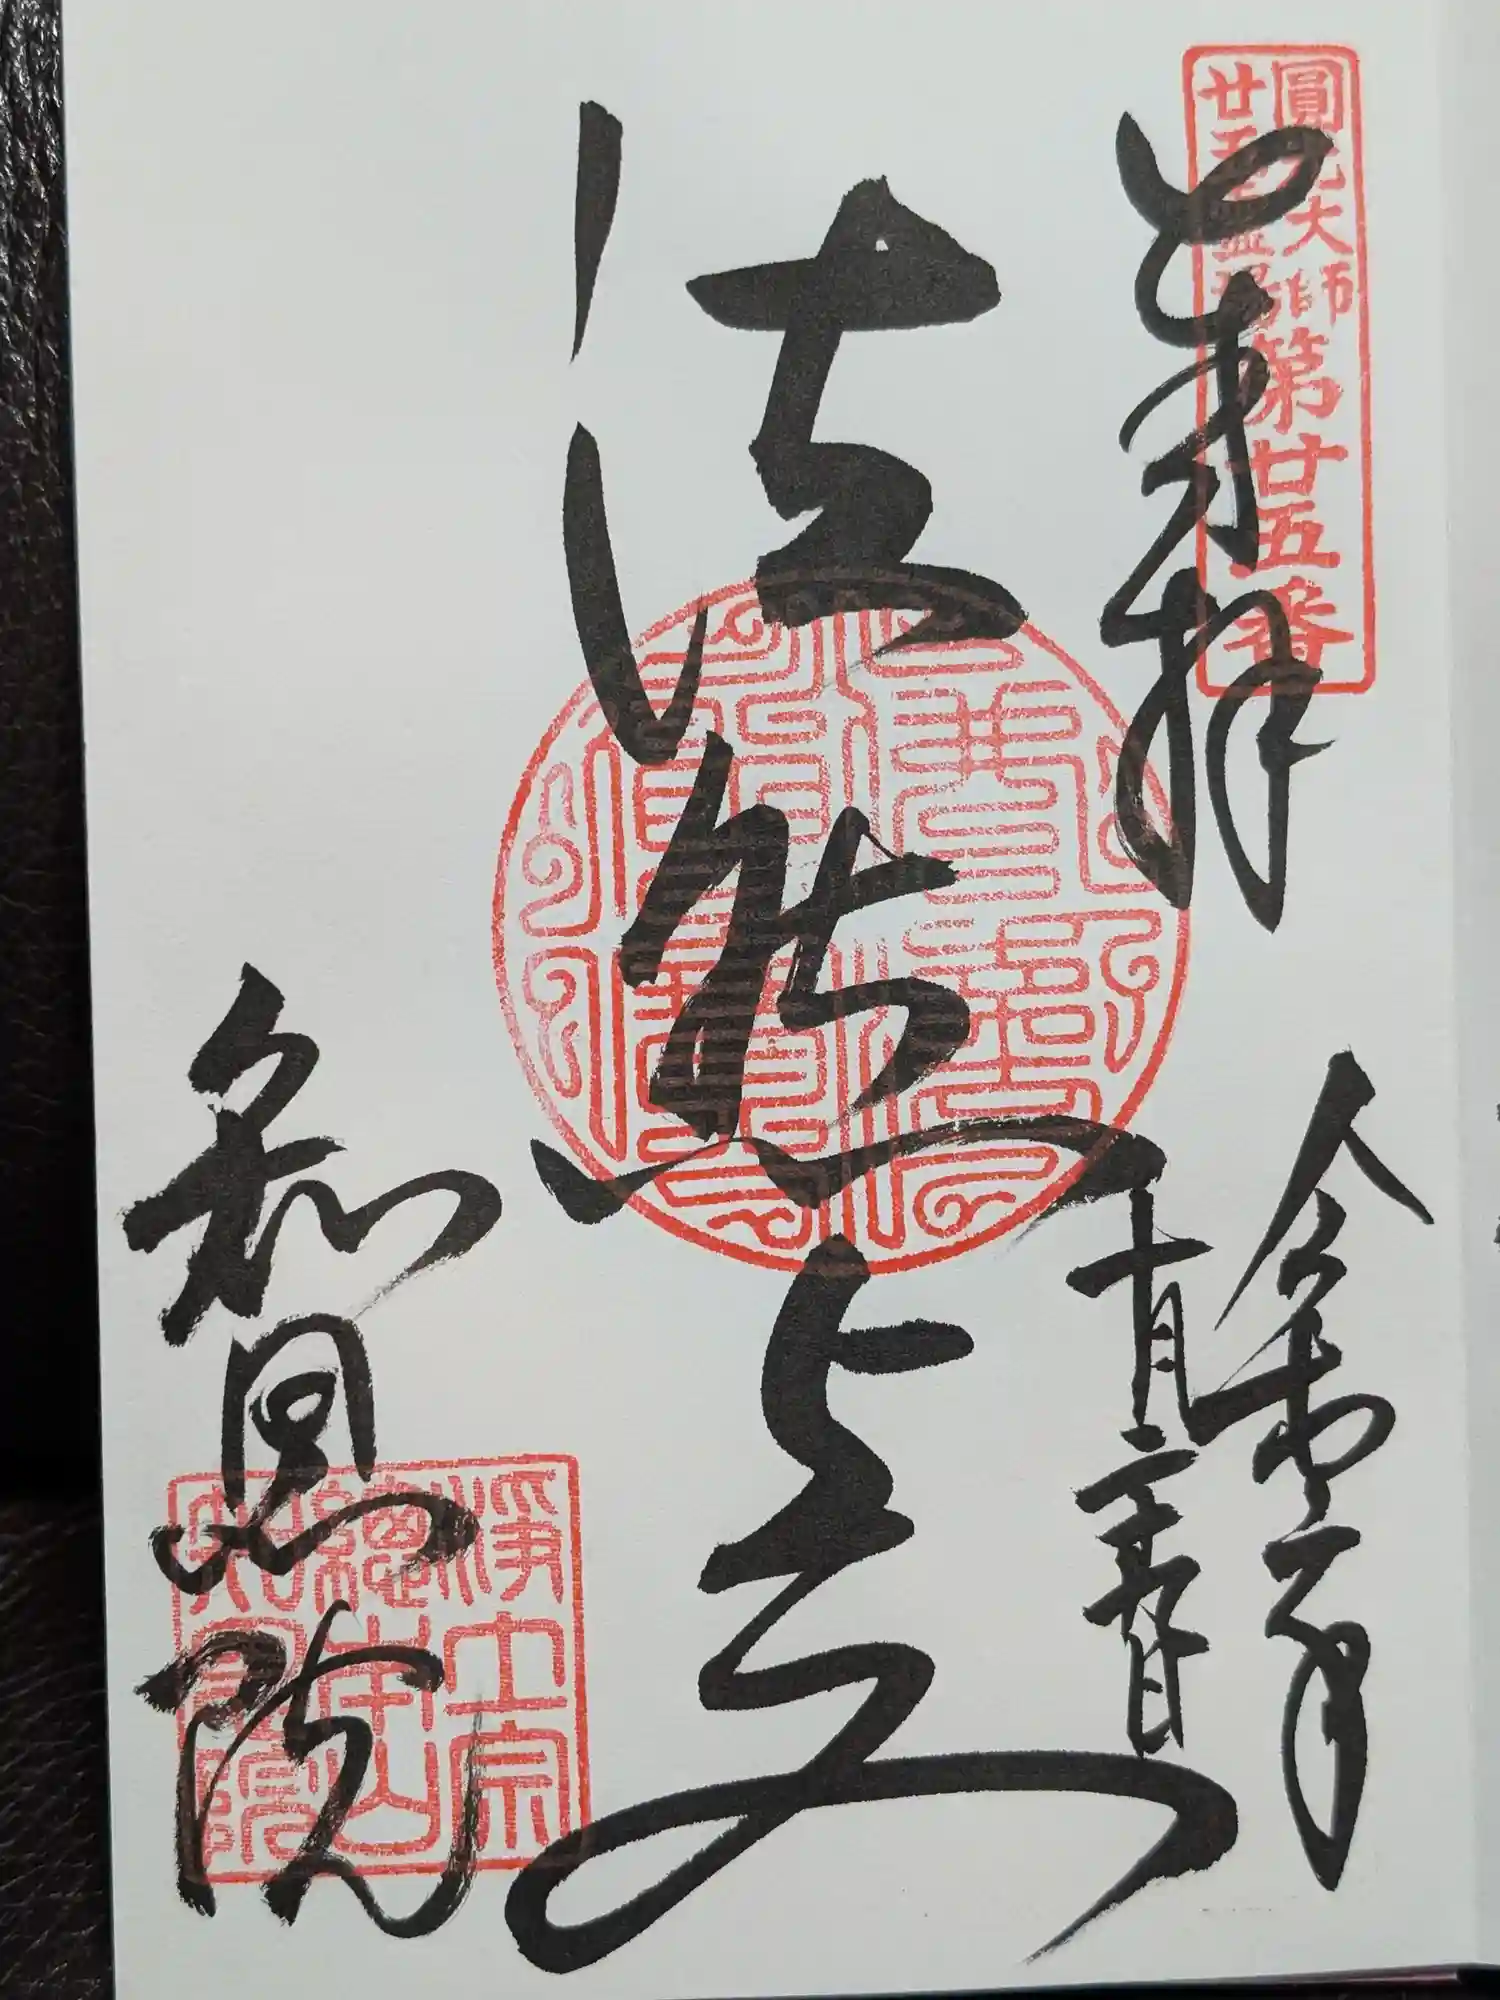 圓光大師
廿五霊場
第廿五番
奉拝
令和六年
十月二十九日
法然上人
知恩院
淨土宗
總本山
知恩院